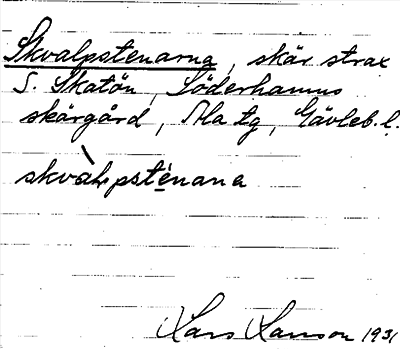 Skvalpstenarna, skär strax
S. Skatön, Söderhamns
skärgård, Ala tg, Gävleb. l.
skvàlpsténana
Lars Larsson 1931